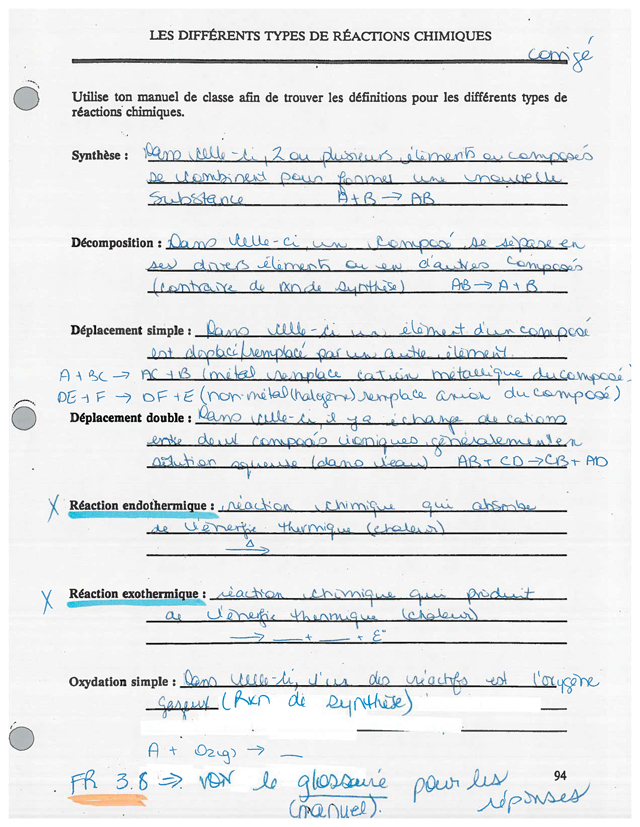 LES DIFFÉRENTS TYPES DE RÉACTIONS CHIMIQUES
corrigé
Utilise ton manuel de classe afin de trouver les définitions pour les différents types de
réactions chimiques.
Synthèse : Dans celle-ci, 2 ou plusieurs éléments ou composés
se combinent pour former une nouvelle
substance A + B → AB
Décomposition : Dans celle-ci, un composé se sépare en
ses divers éléments ou en d'autres composés
(contraire de rxn de synthèse) AB → A + B
Déplacement simple : Dans celle-ci un élément d'un composé
est déplacé/remplacé par un autre élément.
A + BC → AC + B (métal remplace cation métallique du composé)
DE + F → DF + E (non-métal (halogène) remplace anion du composé)
Déplacement double : Dans celle-ci, il y a échange de cations
entre deux composés ioniques, généralement en
solution aqueuse (dans l'eau) AB + CD → CB + AD
X Réaction endothermique : réaction chimique qui absorbe
de l'énergie thermique (chaleur)
Δ →
X Réaction exothermique : réaction chimique qui produit
de l'énergie thermique (chaleur)
→ __ + __ + E
Oxydation simple : Dans celle-ci, l'un des réactifs est l'oxygène
gazeux (Rxn de synthèse)
A + O2(g) → __
94
FR 3.8 ⇒ voir le glossaire pour les réponses
(manuel).